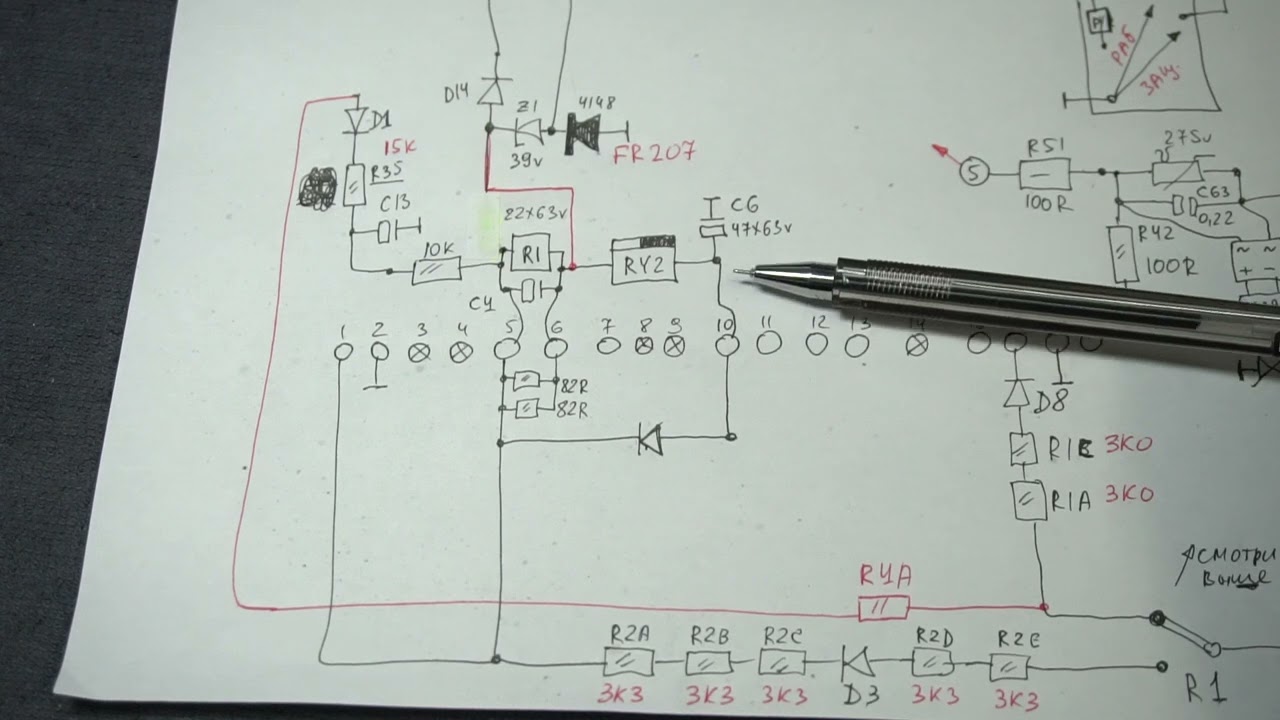 РУ
РАБ
ЗАЩ.
D14
Z1
4148
39v
FR207
D1
15K
R35
C13
10K
22x63v
R1
C4
RY2
C6
47x63v
5
R51
100R
275v
C63
0,22
R42
100R
~ ~
+ -
1 2 3 4 5 6 7 8 9 10 11 12 13 14
82R
82R
D8
R1B 3K0
R1A 3K0
R4A
СМОТРИ
ВЫШЕ
R2A R2B R2C D3 R2D R2E
3K3 3K3 3K3 3K3 3K3
R1